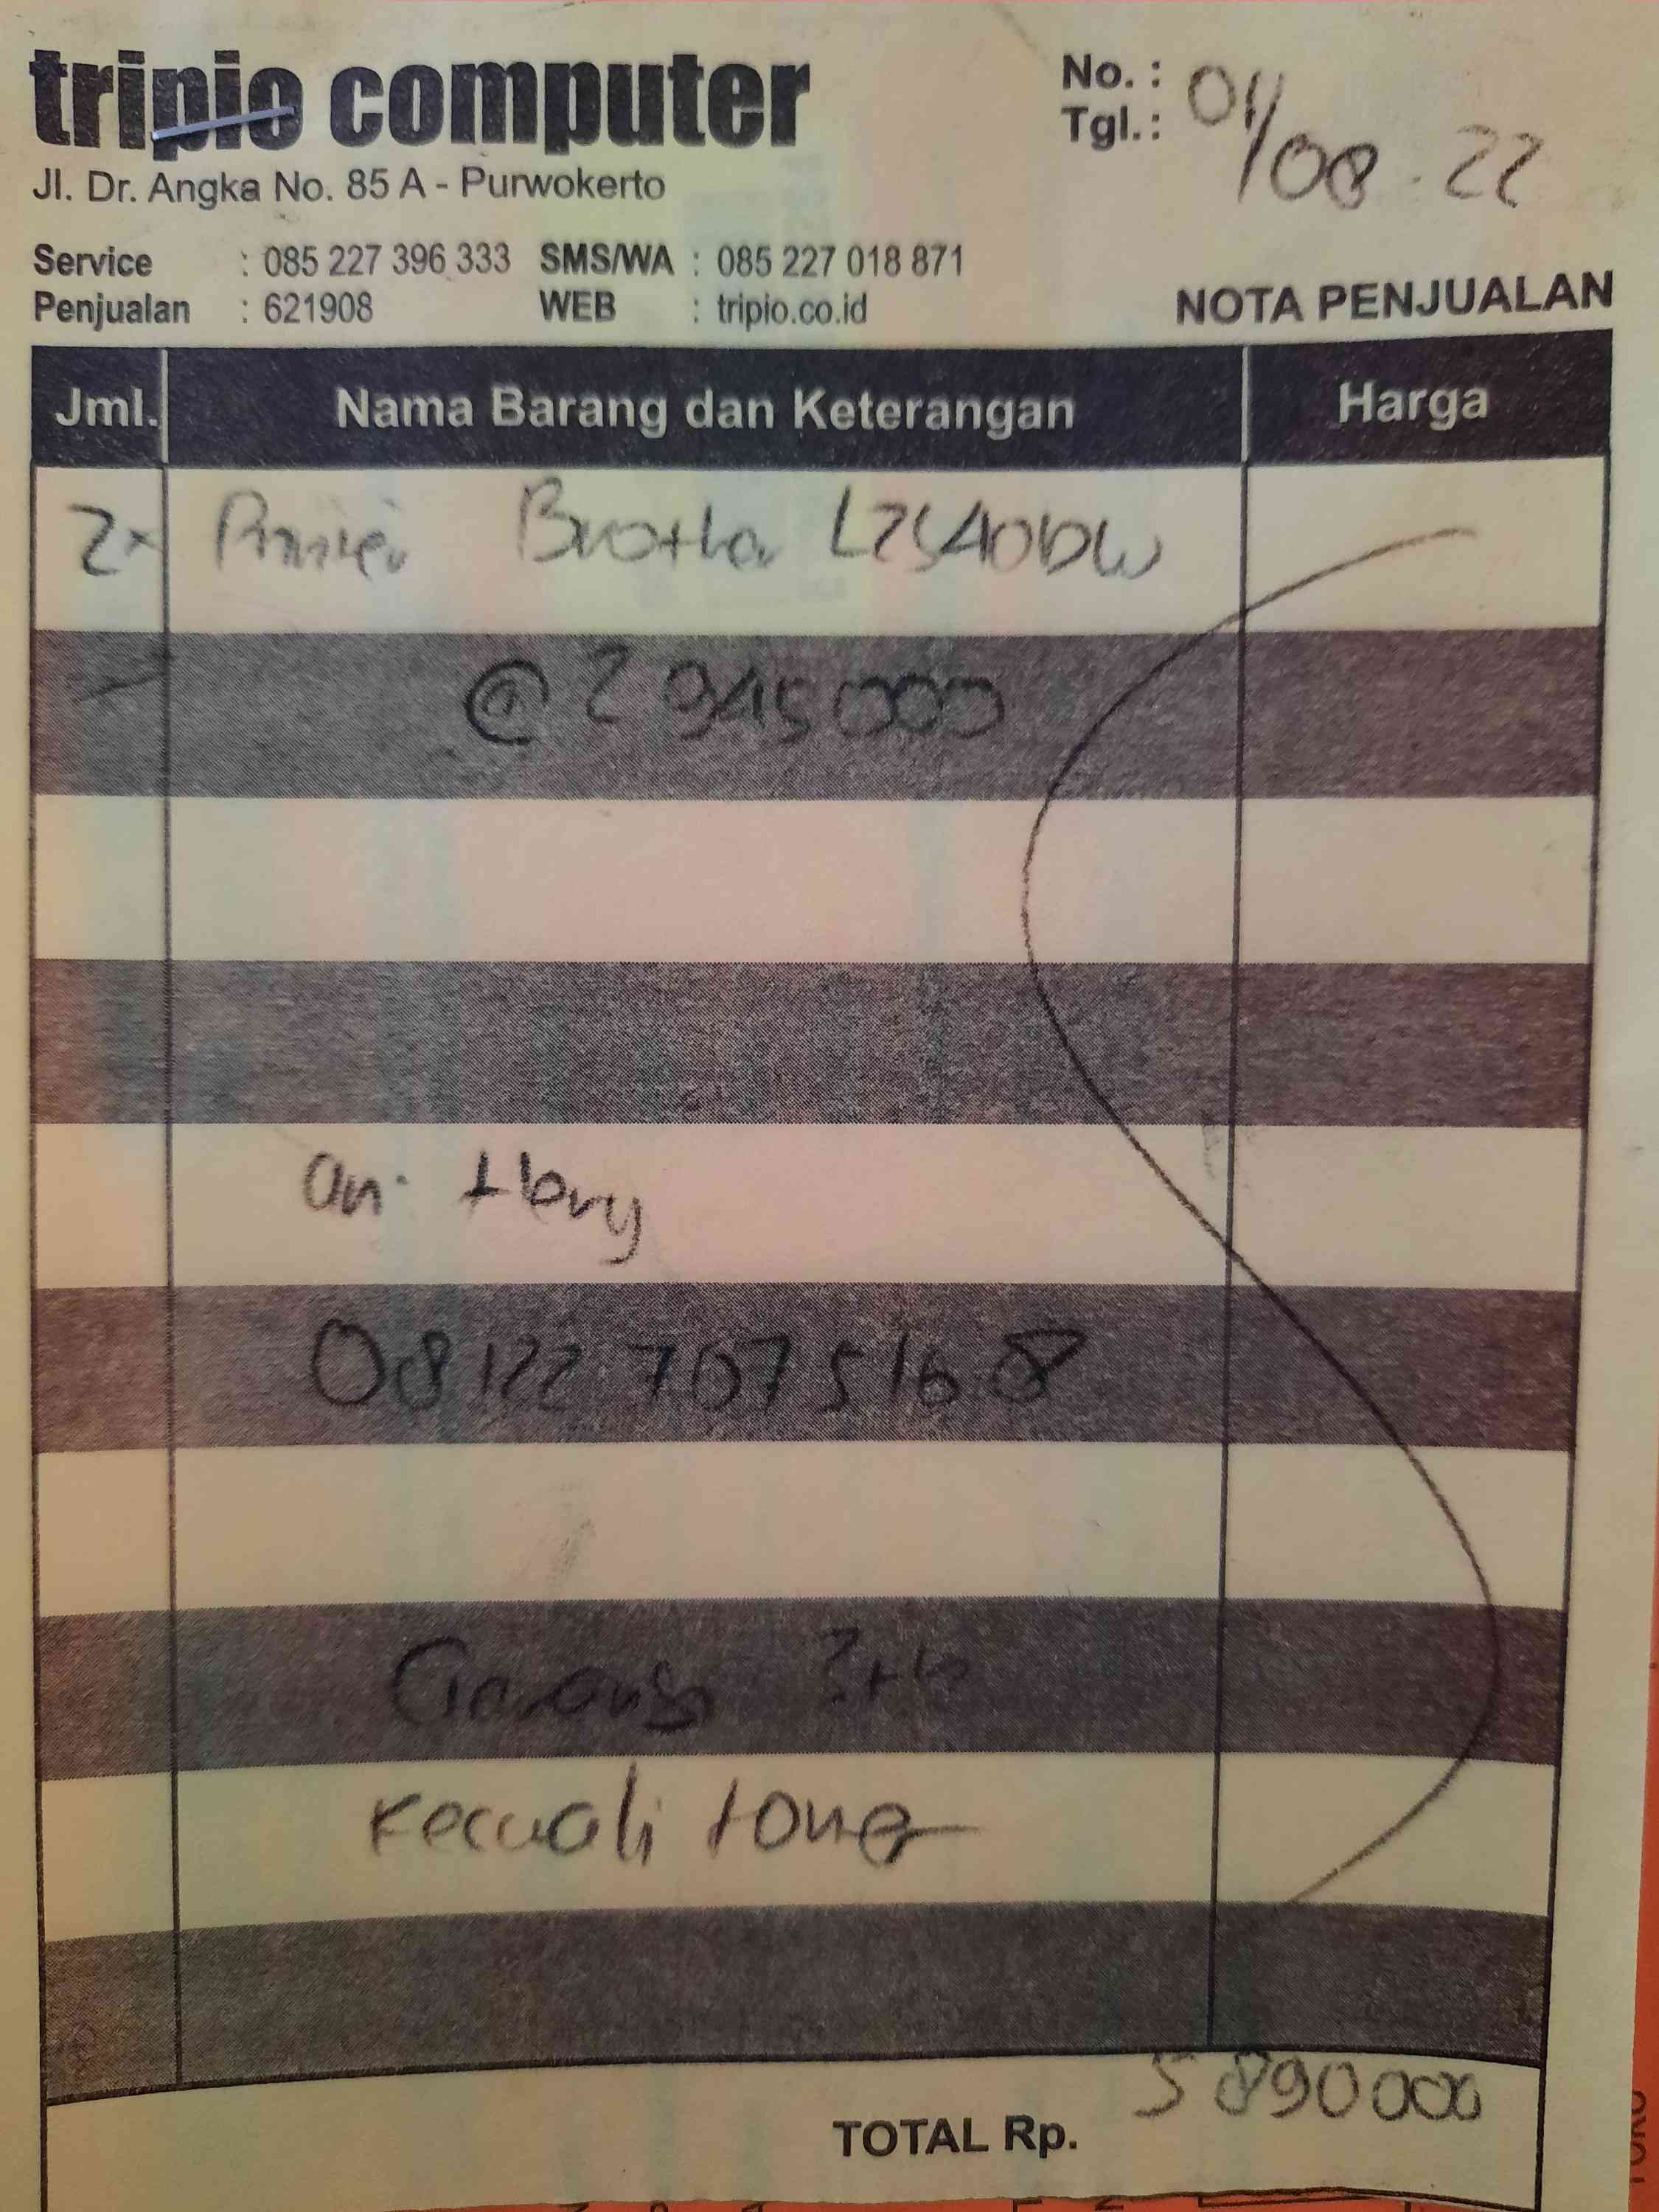 tripio computer
Jl. Dr. Angka No. 85 A - Purwokerto
Service : 085 227 396 333 SMS/WA : 085 227 018 871
Penjualan : 621908 WEB : tripio.co.id
No. :
Tgl. : 01/08.22
NOTA PENJUALAN
Jml. Nama Barang dan Keterangan Harga
2x Printer Brother L2540DW
@ 2945000
an.
081227075168
Garansi
kecuali toner
TOTAL Rp. 5890000